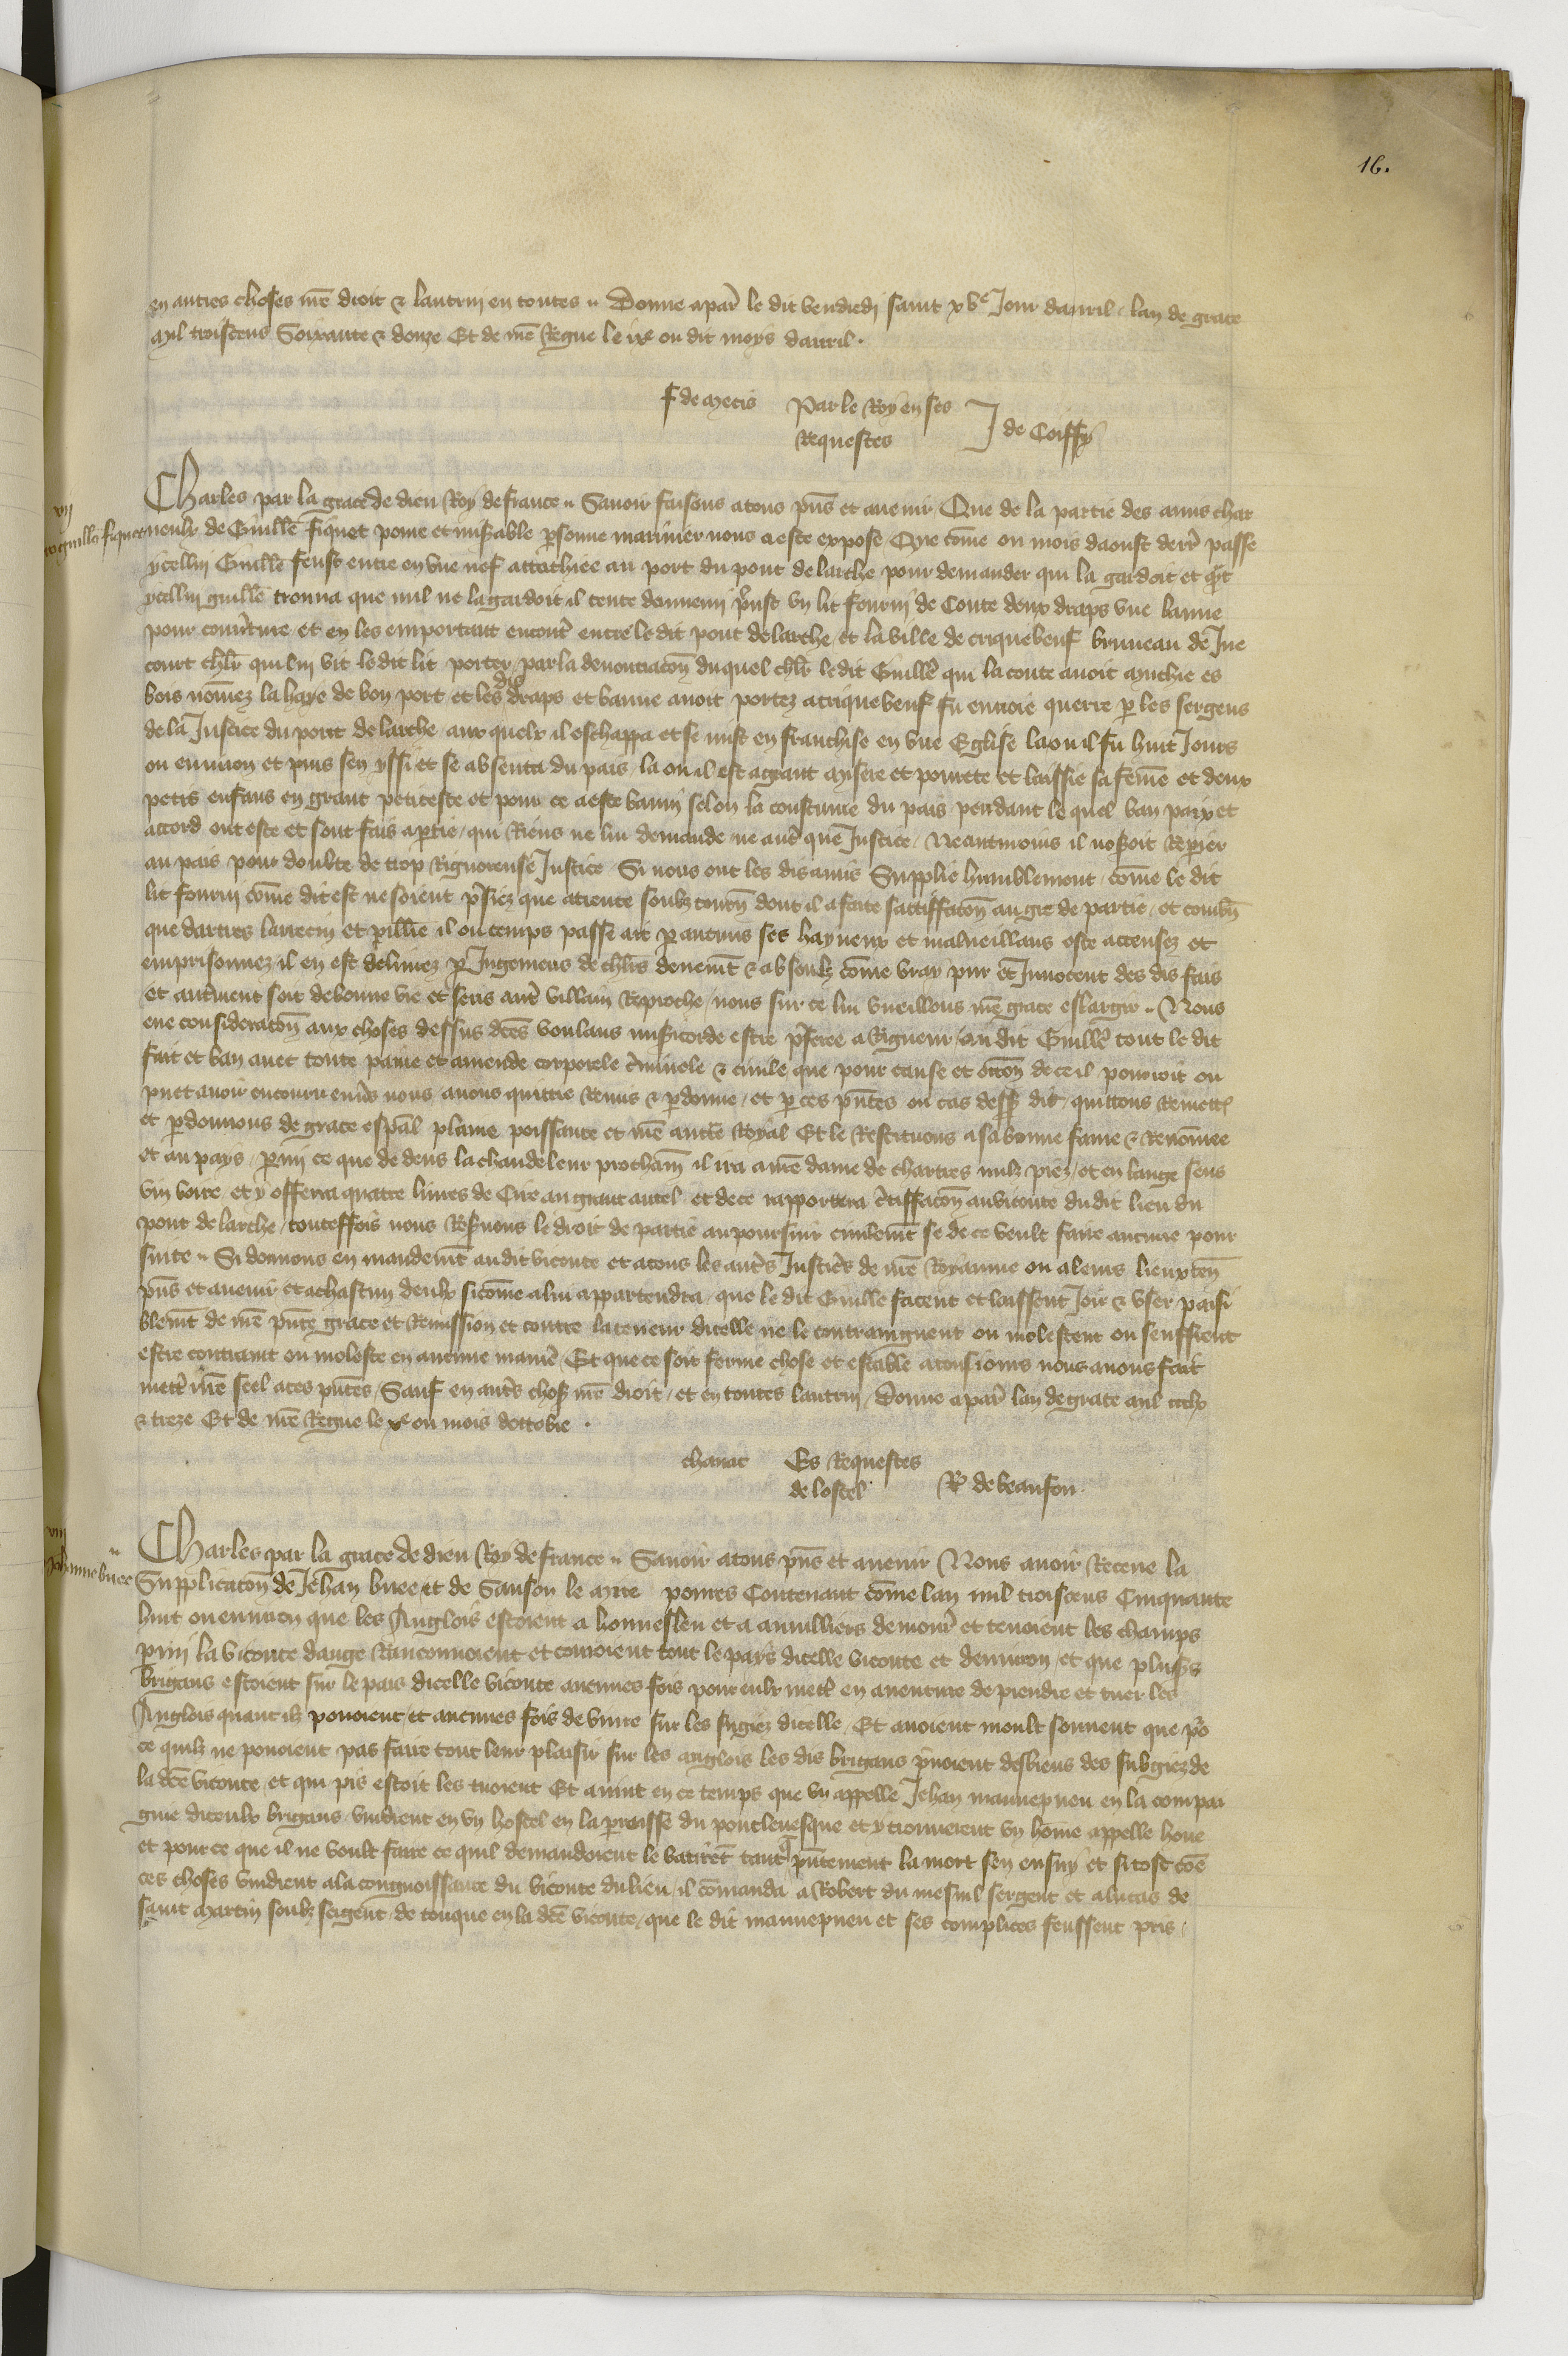 16.
en autres choses nr̄e droit & lautrui en toutes ~ Donne a par̄ le dit vendredi saint xve Jour dauril / lan de grace
mil troiscens Soixante & douze Et de nr̄e Regne le ixe ou dit moys dauril .
f de metis Par le Roy en ses
Requestes J de Coiffy
vij
Charles par la grace de dieu Roy de france ~ Sauoir faisons a tous pn̄s et auenir Que de la partie des amis char
guille fiquet
neulx de Guille fiquet poure et miẜable p̲sonne marinier nous a este expose Que cōme ou mois daoust derr̄ passe
ycellui Guille feust entre en vne nef attachiee au port du pont de larche pour demander qui la gardoit et q̄nt
ycellui guille trouua que nul ne la gardoit il tente dennemi p̄nst vn lit fourni de Coute deux draps vne banne
pour couu̾ture et en les emportant encont̾ entre le dit pont de larche et la ville de criquebeuf bruneau de Jue
court chlr̄ qui lui vit le dit lit porter / par la denontiacōn duquel chlr̄ le dit Guille qui la coute auoit muchie es
bois nōmez la haye de bon port et les dis draps et banne auoit portez a criquebeuf fu enuoie querre p̲ les sergens
de la Justice du pont de larche aux quelx il eschappa et se mist en franchise en vne Eglise la ou il fu huit Jours
ou enuiron et puis sen yssi et se absenta du pais / la ou il est a grant misere et pourete et laissie sa fēme et deux
petis enfans en grant petitesce et pour ce a este banni selon la coustume du pais / pendant le quel ban paix et
accord ont este et sont fais a p̲tie / qui Riens ne lui demande ne aut̾ que Justice / Neantmoins il noẜoit Rep̲ier
au pais pour doubte de trop Rigoreuse Justice . Si nous ont les dis amis Supplie humblement / cōme le dit
lit fourni cōme dit est ne soient p̄siez que a trente soulz tourn̄ dont il a faite sattiffacōn au gre de partie / et combn̄
que dautres larrecin et pillie il ou temps passe ait p̲ aucuns ses hayneux et malueillans este accusez et
emprisonnez il en est deliurez p̲ Jugemens de chlr̄s deuemt̄ & absoulz cōme vray pur et Innocent des dis fais
et autrement soit de bonne vie et sens aut̾ villain Reproche / nous sur ce lui vueillons nr̄e grace eslargir ~ Nous
eue consideracōn aux choses dessus dc̄es voulans miẜicorde estre p̄feree a Rigueur / au dit Guille tout le dit
fait et ban auec toute paine et amende corporele c̾minele & ciuile que pour cause et occōn de ce il pourroit ou
puet auoir encouru enu̾s nous auons quittie Remis & p̲donne / et p̲ ces pn̄tes ou cas dess̄ dit / quittons Remett̾
et p̲donnons de grace esp̄al plaine poissance et nr̄e aucte Royal Et le Restituons a sa bonne fame & Renōmee
et au pays / p̲my ce que dedens la chandeleur prochain̄ il ira a nr̄e dame de chartres nulz piez / et en lange sens
vin boire / et y offerra quatre liures de Cire au grant autel / et de ce rapportera c̾tifficacōn au viconte du dit lieu du
pont de larche / touteffois nous Reẜuons le droit de partie a poursuir ciuilemt̄ se de ce veult faire aucune pour
suite ~ Si donnons en mandemt̄ au dit viconte et a tous les aut̾s Justic̾s de nr̄e Royaume ou a leurs lieuxten̄
pn̄s et auenir et a chascun deulx si cōme a lui appartendra / que le dit Guille facent et laissent Joir & vser paisi
blemt̄ de nr̄e pn̄te grace et Remission et contre la teneur dicelle ne le contraingnent ou molestent ou seuffrent
estre contraint ou moleste en aucune manie̾ / Et que ce soit ferme chose et estable a tousiours nous auons fait
mett̾ nr̄e seel a ces pn̄tes / Sauf en aut̾s choẜ nr̄e droit / et en toutes lautrui / Donne a par̄ lan de grace mil ccclx
& treze Et de nr̄e Regne le xe ou mois doctobre .
chanac Es Requestes
de lostel R̄ de beaufou
viij
Charles par la grace de dieu Roy de france ~ Sauoir a tous pn̄s et auenir Nous auoir Receue la
Jehanne buee
Supplicacōn de Jehan buee et de Sanson le mire poures Contenant cōme lan mil troiscens Cinquante
huit ou enuiron que les Anglois estoient a honnefleu et a aruilliers demour̾ et tenoient les champs
p̲my la viconte dauge Raenconnoient et couroient tout le pays dicelle viconte et denuiron / et que plus̾s
brigans estoient sur le pais dicelle viconte aucunes fois pour eulx mett̾ en auenture de prendre et tuer les
Anglois quant ilz pouoient / et aucunes fois de viure sur les subgiez dicelle / Et auoient moult souuent que po̾
ce quilz ne pouoient pas faire tout leur plaisir sur les anglois les dis brigans p̄noient des biens des subgiez de
la dc̄e viconte / et qui pis estoit les tuoient Et auint en ce temps que vn appelle Jehan mannepneu en la compai
gnie diceulx brigans / vindrent en vn hostel en la p̲roisse du pontleuesque et y trouuerent vn hōme appelle houe
et pour ce que il ne voult faire ce quil demandoient le batiret̄ tant q̄ pn̄tement la mort sen ensuy et si tost cōe
ces choses vindrent a la congnoissance du viconte du lieu / il cōmanda a Robert du mesnil sergent et a lucas de
saint martin soubz sergent de touque en la dc̄e viconte / que le dit mannepneu et ses complices feussent pris /